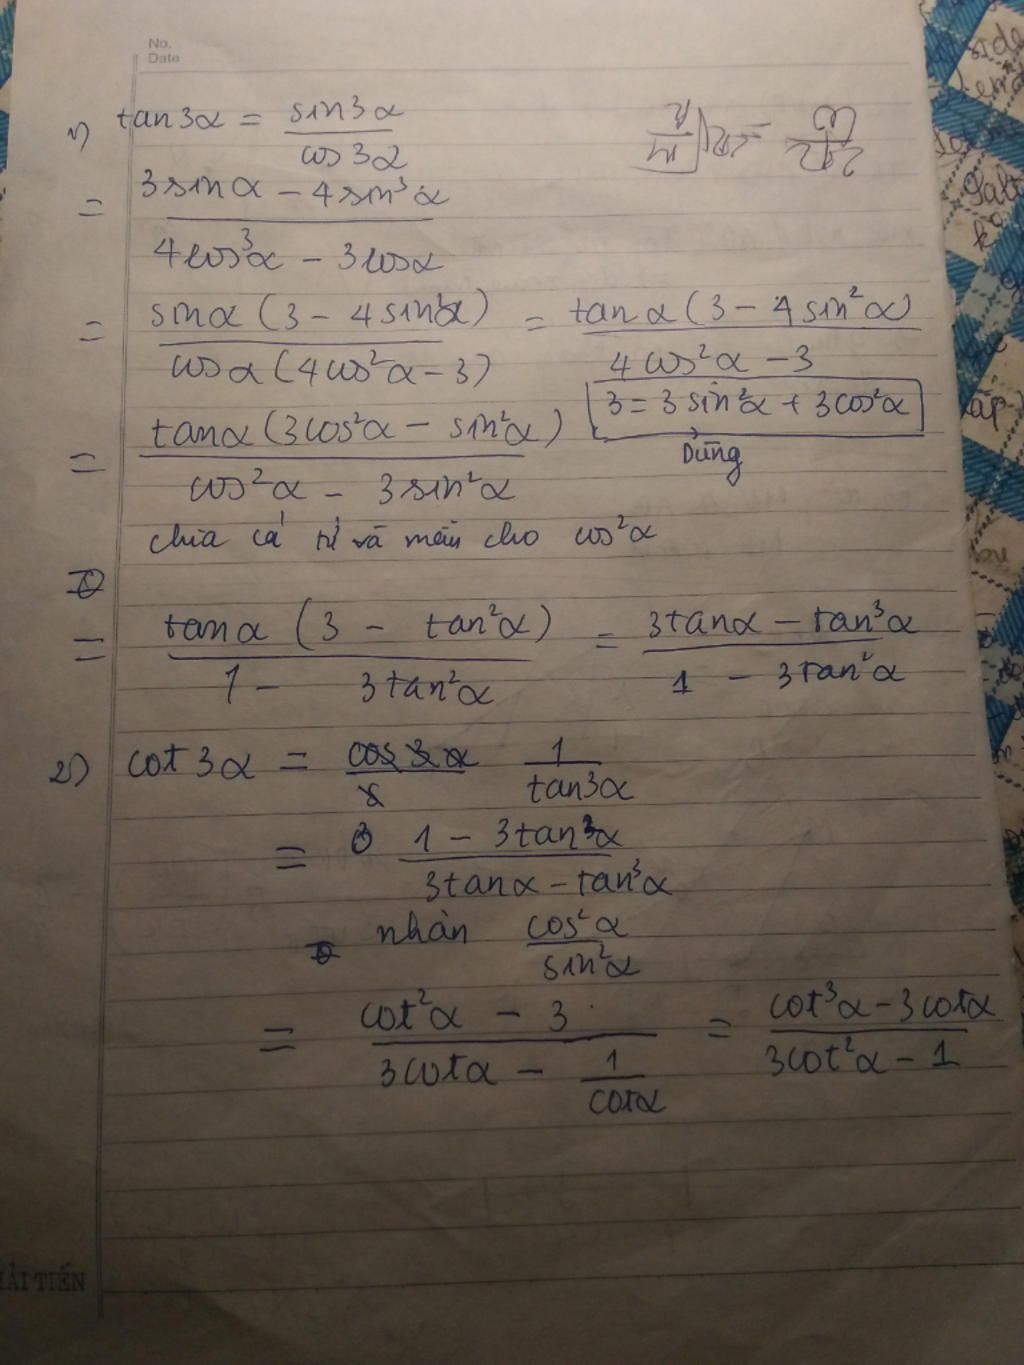 No.
Date
1) tan3α = sin3α / cos3α
= 3sinα - 4sin³α / 4cos³α - 3cosα
= sinα (3 - 4sin²α) / cosα (4cos²α - 3) = tanα (3 - 4sin²α) / 4cos²α - 3
3 = 3sin²α + 3cos²α
Dùng
= tanα (3cos²α - sin²α) / cos²α - 3sin²α
chia cả tử và mẫu cho cos²α
= tanα (3 - tan²α) / 1 - 3tan²α = 3tanα - tan³α / 1 - 3tan²α
2) cot3α = 1 / tan3α
= 1 - 3tan²α / 3tanα - tan³α
nhân cos²α / sin²α
= cot²α - 3 / 3cotα - 1 / cotα = cot³α - 3cotα / 3cot²α - 1
HẢI TIẾN